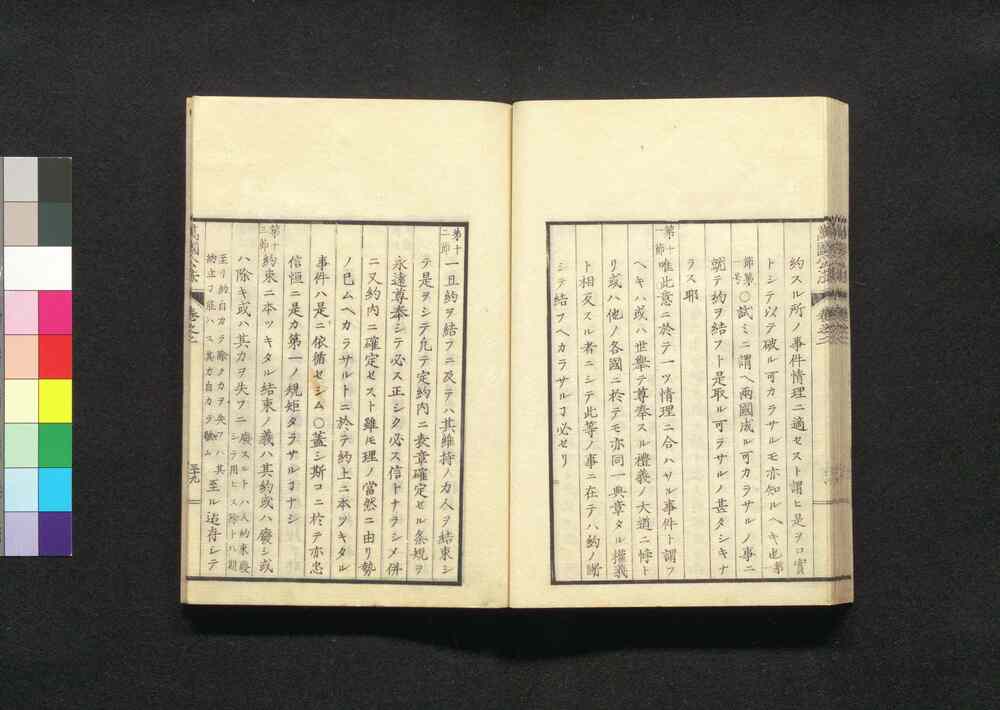 約スル所ノ事件情理ニ適セスト謂ヒ是ヲロ實
トシテ以テ破ル可カラサルモ亦知ルヘキ也第
節第一号〇試ミニ謂ヘ兩國成ル可カラサルノ事ニ
就テ約ヲ結フト是取ル可ラサルノ甚タシキナ
ラス耶
第十一節唯此意ニ於テ一ツ情理ニ合ハサル事件ト謂フ
ヘキハ或ハ世擧テ尊奉スル禮義ノ大道ニ悖ト
リ或ハ他ノ各國ニ於テモ亦同一典章タル權義
ト相反スル者ニシテ此等ノ事ニ在テハ約ノ
シテ結フヘカラサルヿ必セリ
第十二節一旦約ヲ結フニ及テハ其維持ノカ人ヲ結束シ
テ是ヲシテ允テ定約内ニ表章確定セル条規ヲ
永遠尊奉シテ必ス正シク必ス信トナラシメ併
ニ又約内ニ確定セスト雖モ理ノ當然ニ由リ勢
ノ已ムヘカラサルトニ於テ約上ニ本ツキタル
事件ハ是ニ依循セシム〇蓋シ斯コニ於テ亦忠
信恒ニ是カ第一ノ規矩タラサルヿナシ
第十三節約束ニ本ツキタル結束ノ義ハ其約或ハ廢シ或
ハ除キ或ハ其カヲ失フニ廢スルトハ人約束廢シテ用ヒス除トハ期
至リ約自カラ除クカヲ失フハ其約立ヿ底ハス其カ自カラ至ル迠存シテ
萬國公法
卷之
三十九